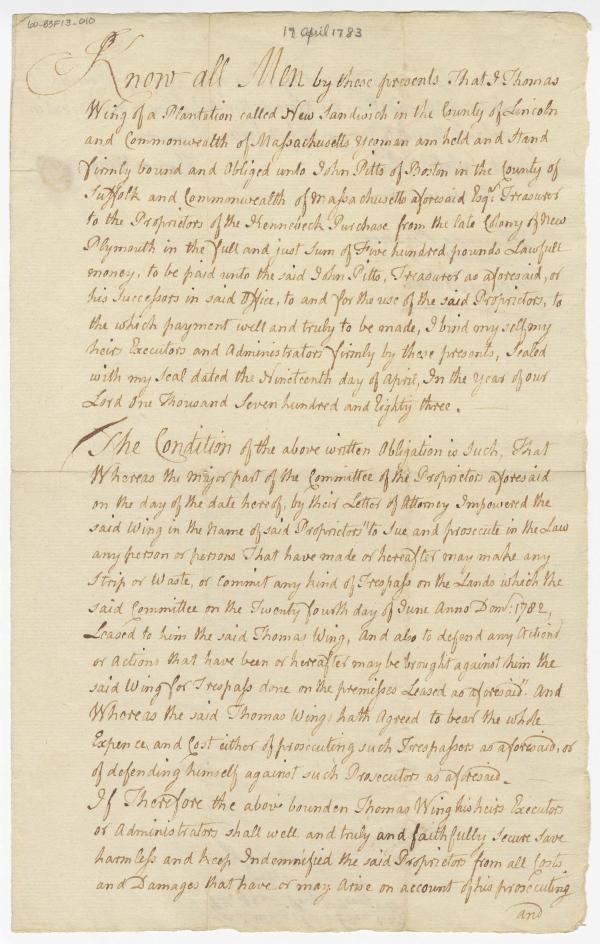 60-83F13-010
19 April 1783
Know all Men by these presents That I Thomas
Wing of a Plantation called New Sandwich in the County of Lincoln
and Commonwealth of Massachusetts Yeoman am held and stand
firmly bound and Obliged unto John Pitts of Boston in the County of
Suffolk and Commonwealth of Massachusetts aforesaid Esqr. Treasurer
to the Proprietors of the Kennebeck Purchase from the late Colony of New
Plymouth in the full and just sum of Five hundred pounds Lawfull
money, to be paid unto the said John Pitts, Treasurer as aforesaid, or
his Successors in said Office, to and for the use of the said Proprietors, to
the which payment well and truly to be made, I bind my self my
heirs Executors and Administrators firmly by these presents, Sealed
with my Seal dated the Nineteenth day of April, In the year of our
Lord One Thousand Seven hundred and Eighty three.
The Condition of the above written Obligation is Such, That
Whereas the major part of the Committee of the Proprietors aforesaid
on the day of the date hereof, by their Letter of Attorney Impowered the
said Wing in the name of said Proprietors "to Sue and prosecute in the Law
any person or persons That have made or hereafter may make any
Strip or Waste, or Commit any kind of Trespass on the Lands which the
said Committee on the Twenty fourth day of June Anno Dom: 1782,
Leased to him the said Thomas Wing, And also to defend any Action
or Actions that have been or hereafter may be brought against him the
said Wing for Trespass done on the premisses Leased as aforesaid". And
Whereas the said Thomas Wing hath Agreed to bear the whole
Expence and Cost either of prosecuting such Trespassers as aforesaid, or
of defending himself against such Prosecutors as aforesaid.
If Therefore the above bounden Thomas Wing his heirs Executors
or Administrators shall well and truly and faithfully secure save
harmless and keep Indemnified the said Proprietors from all Costs
and Damages that have or may Arise on account of his prosecuting
and